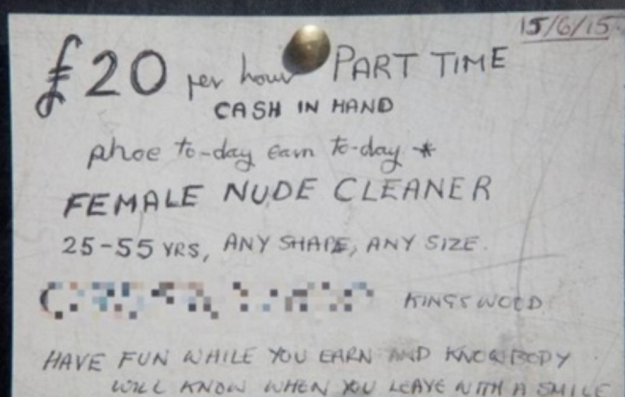 15/6/15.
£20 per hour PART TIME
CASH IN HAND
phoe to-day earn to-day *
FEMALE NUDE CLEANER
25-55 YRS, ANY SHAPE, ANY SIZE.
KINGSWOOD
HAVE FUN WHILE YOU EARN AND KNOWBODY
WILL KNOW WHEN YOU LEAVE WITH A SMILE